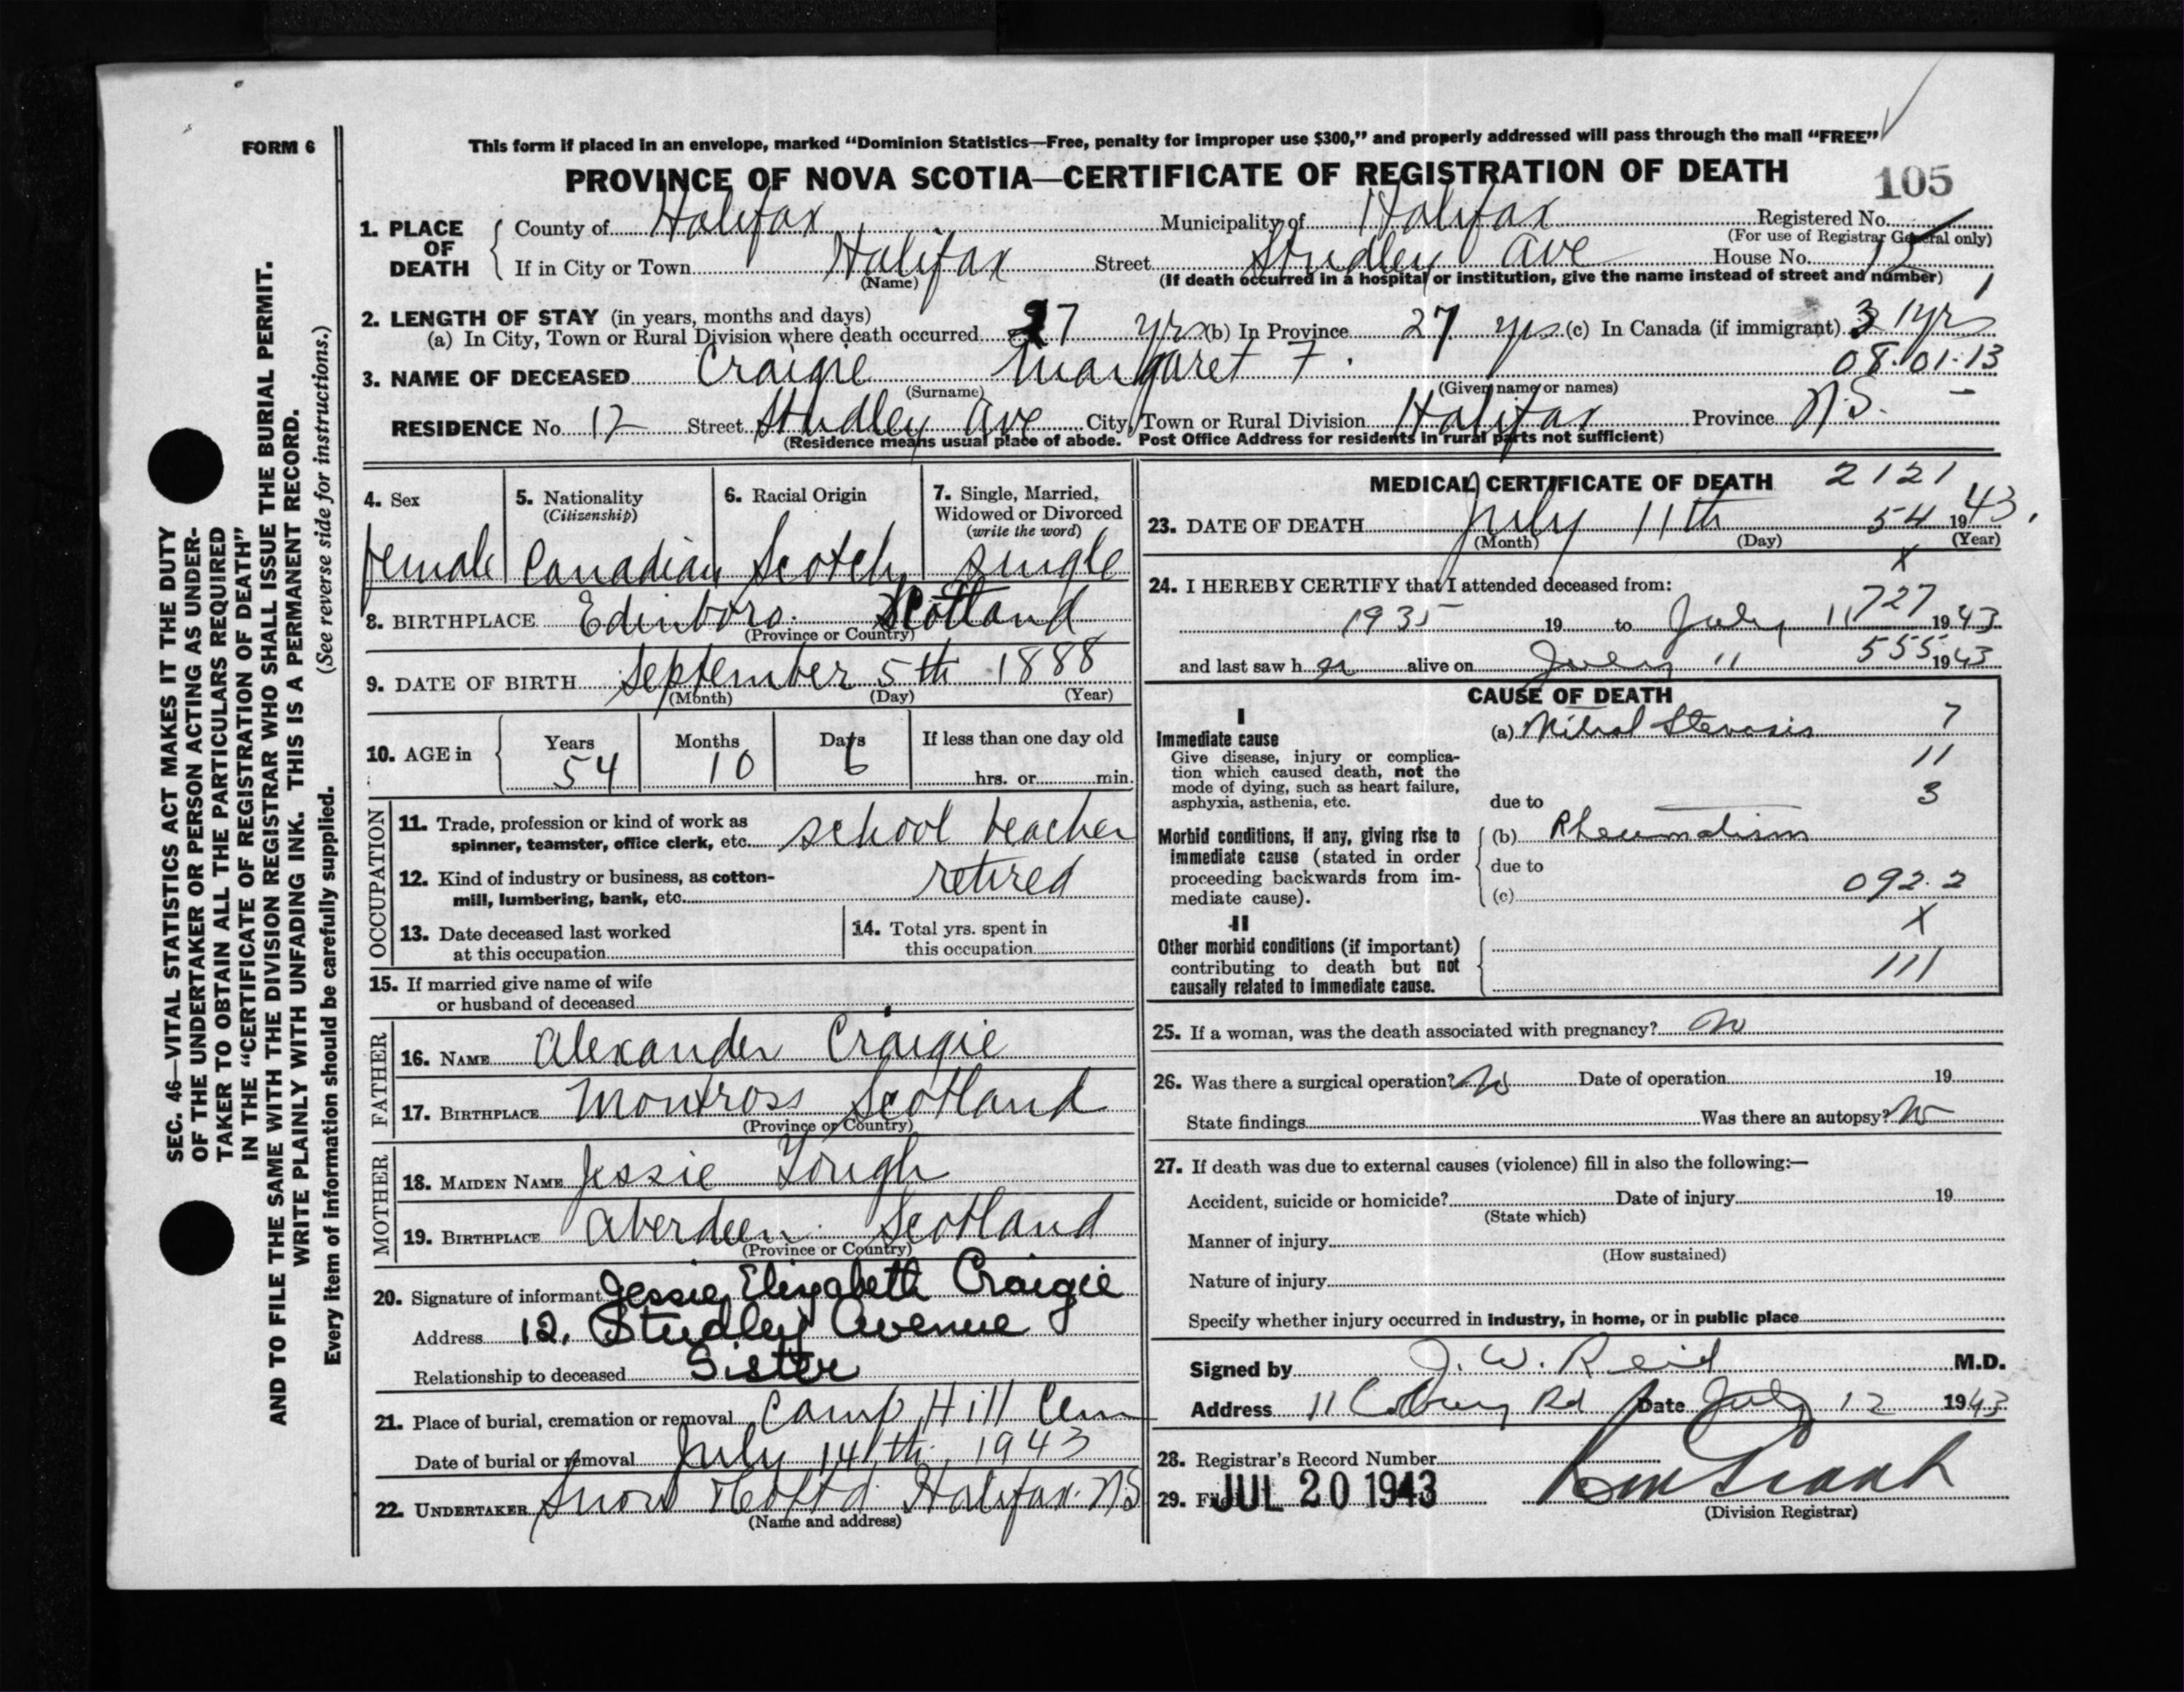 FORM 6
This form if placed in an envelope, marked "Dominion Statistics—Free, penalty for improper use $300," and properly addressed will pass through the mail "FREE"
PROVINCE OF NOVA SCOTIA—CERTIFICATE OF REGISTRATION OF DEATH
105
1. PLACE OF DEATH
County of Halifax Municipality of Halifax Registered No.
(For use of Registrar General only)
If in City or Town Halifax Street Studley Ave House No. 12
(Name) (If death occurred in a hospital or institution, give the name instead of street and number)
2. LENGTH OF STAY (in years, months and days)
(a) In City, Town or Rural Division where death occurred 27 yrs (b) In Province 27 yrs (c) In Canada (if immigrant) 31 yrs
08.01.13
3. NAME OF DECEASED Craigie Margaret F.
(Surname) (Given name or names)
RESIDENCE No. 12 Street Studley Ave City, Town or Rural Division Halifax Province N.S.
(Residence means usual place of abode. Post Office Address for residents in rural parts not sufficient)
4. Sex
female
5. Nationality
(Citizenship)
Canadian
6. Racial Origin
Scotch
7. Single, Married,
Widowed or Divorced
(write the word)
single
8. BIRTHPLACE Edinboro. Scotland
(Province or Country)
9. DATE OF BIRTH September 5th 1888
(Month) (Day) (Year)
10. AGE in Years 54 Months 10 Days 6 If less than one day old
hrs. or min.
OCCUPATION
11. Trade, profession or kind of work as
spinner, teamster, office clerk, etc. school teacher
12. Kind of industry or business, as cotton-
mill, lumbering, bank, etc. retired
13. Date deceased last worked
at this occupation
14. Total yrs. spent in
this occupation
15. If married give name of wife
or husband of deceased
FATHER
16. NAME Alexander Craigie
17. BIRTHPLACE Montross Scotland
(Province or Country)
MOTHER
18. MAIDEN NAME Jessie Tough
19. BIRTHPLACE Aberdeen. Scotland
(Province or Country)
20. Signature of informant Jessie Elizabeth Craigie
Address 12, Studley Avenue
Relationship to deceased Sister
21. Place of burial, cremation or removal Camp Hill Cem
Date of burial or removal July 14th, 1943
22. UNDERTAKER Snow & Co Ltd Halifax. NS
(Name and address)
MEDICAL CERTIFICATE OF DEATH 2121
23. DATE OF DEATH July 11th 54 1943.
(Month) (Day) (Year)
X
24. I HEREBY CERTIFY that I attended deceased from:
727
1935 19 to July 11 1943
555
and last saw her alive on July 11 1943
CAUSE OF DEATH
I
Immediate cause
Give disease, injury or complica-
tion which caused death, not the
mode of dying, such as heart failure,
asphyxia, asthenia, etc.
(a) Mitral Stenosis 7
11
due to 3
Morbid conditions, if any, giving rise to
immediate cause (stated in order
proceeding backwards from im-
mediate cause).
(b) Rheumatism
due to
(c) 092.2
X
II
Other morbid conditions (if important)
contributing to death but not
causally related to immediate cause.
111
25. If a woman, was the death associated with pregnancy? No
26. Was there a surgical operation? No Date of operation 19
State findings Was there an autopsy? No
27. If death was due to external causes (violence) fill in also the following:—
Accident, suicide or homicide? Date of injury 19
(State which)
Manner of injury
(How sustained)
Nature of injury
Specify whether injury occurred in industry, in home, or in public place
Signed by J. W. Reid M.D.
Address 11 Coburg Rd Date July 12 1943
28. Registrar's Record Number
29. Filed JUL 20 1943
(Division Registrar)
SEC. 46—VITAL STATISTICS ACT MAKES IT THE DUTY
OF THE UNDERTAKER OR PERSON ACTING AS UNDER-
TAKER TO OBTAIN ALL THE PARTICULARS REQUIRED
IN THE "CERTIFICATE OF REGISTRATION OF DEATH"
AND TO FILE THE SAME WITH THE DIVISION REGISTRAR WHO SHALL ISSUE THE BURIAL PERMIT.
WRITE PLAINLY WITH UNFADING INK. THIS IS A PERMANENT RECORD.
Every item of information should be carefully supplied. (See reverse side for instructions.)